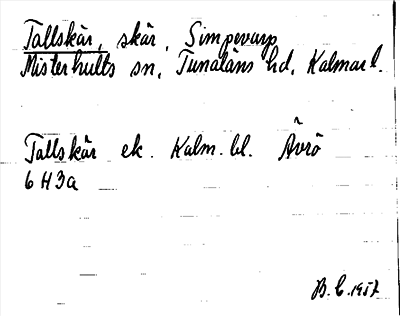 Tallskär, skär, Simpevarp
Misterhults sn, Tunaläns hd, Kalmar l.
Tallskär ek. Kalm. bl. Ävrö
6 H 3a
B. C. 1957